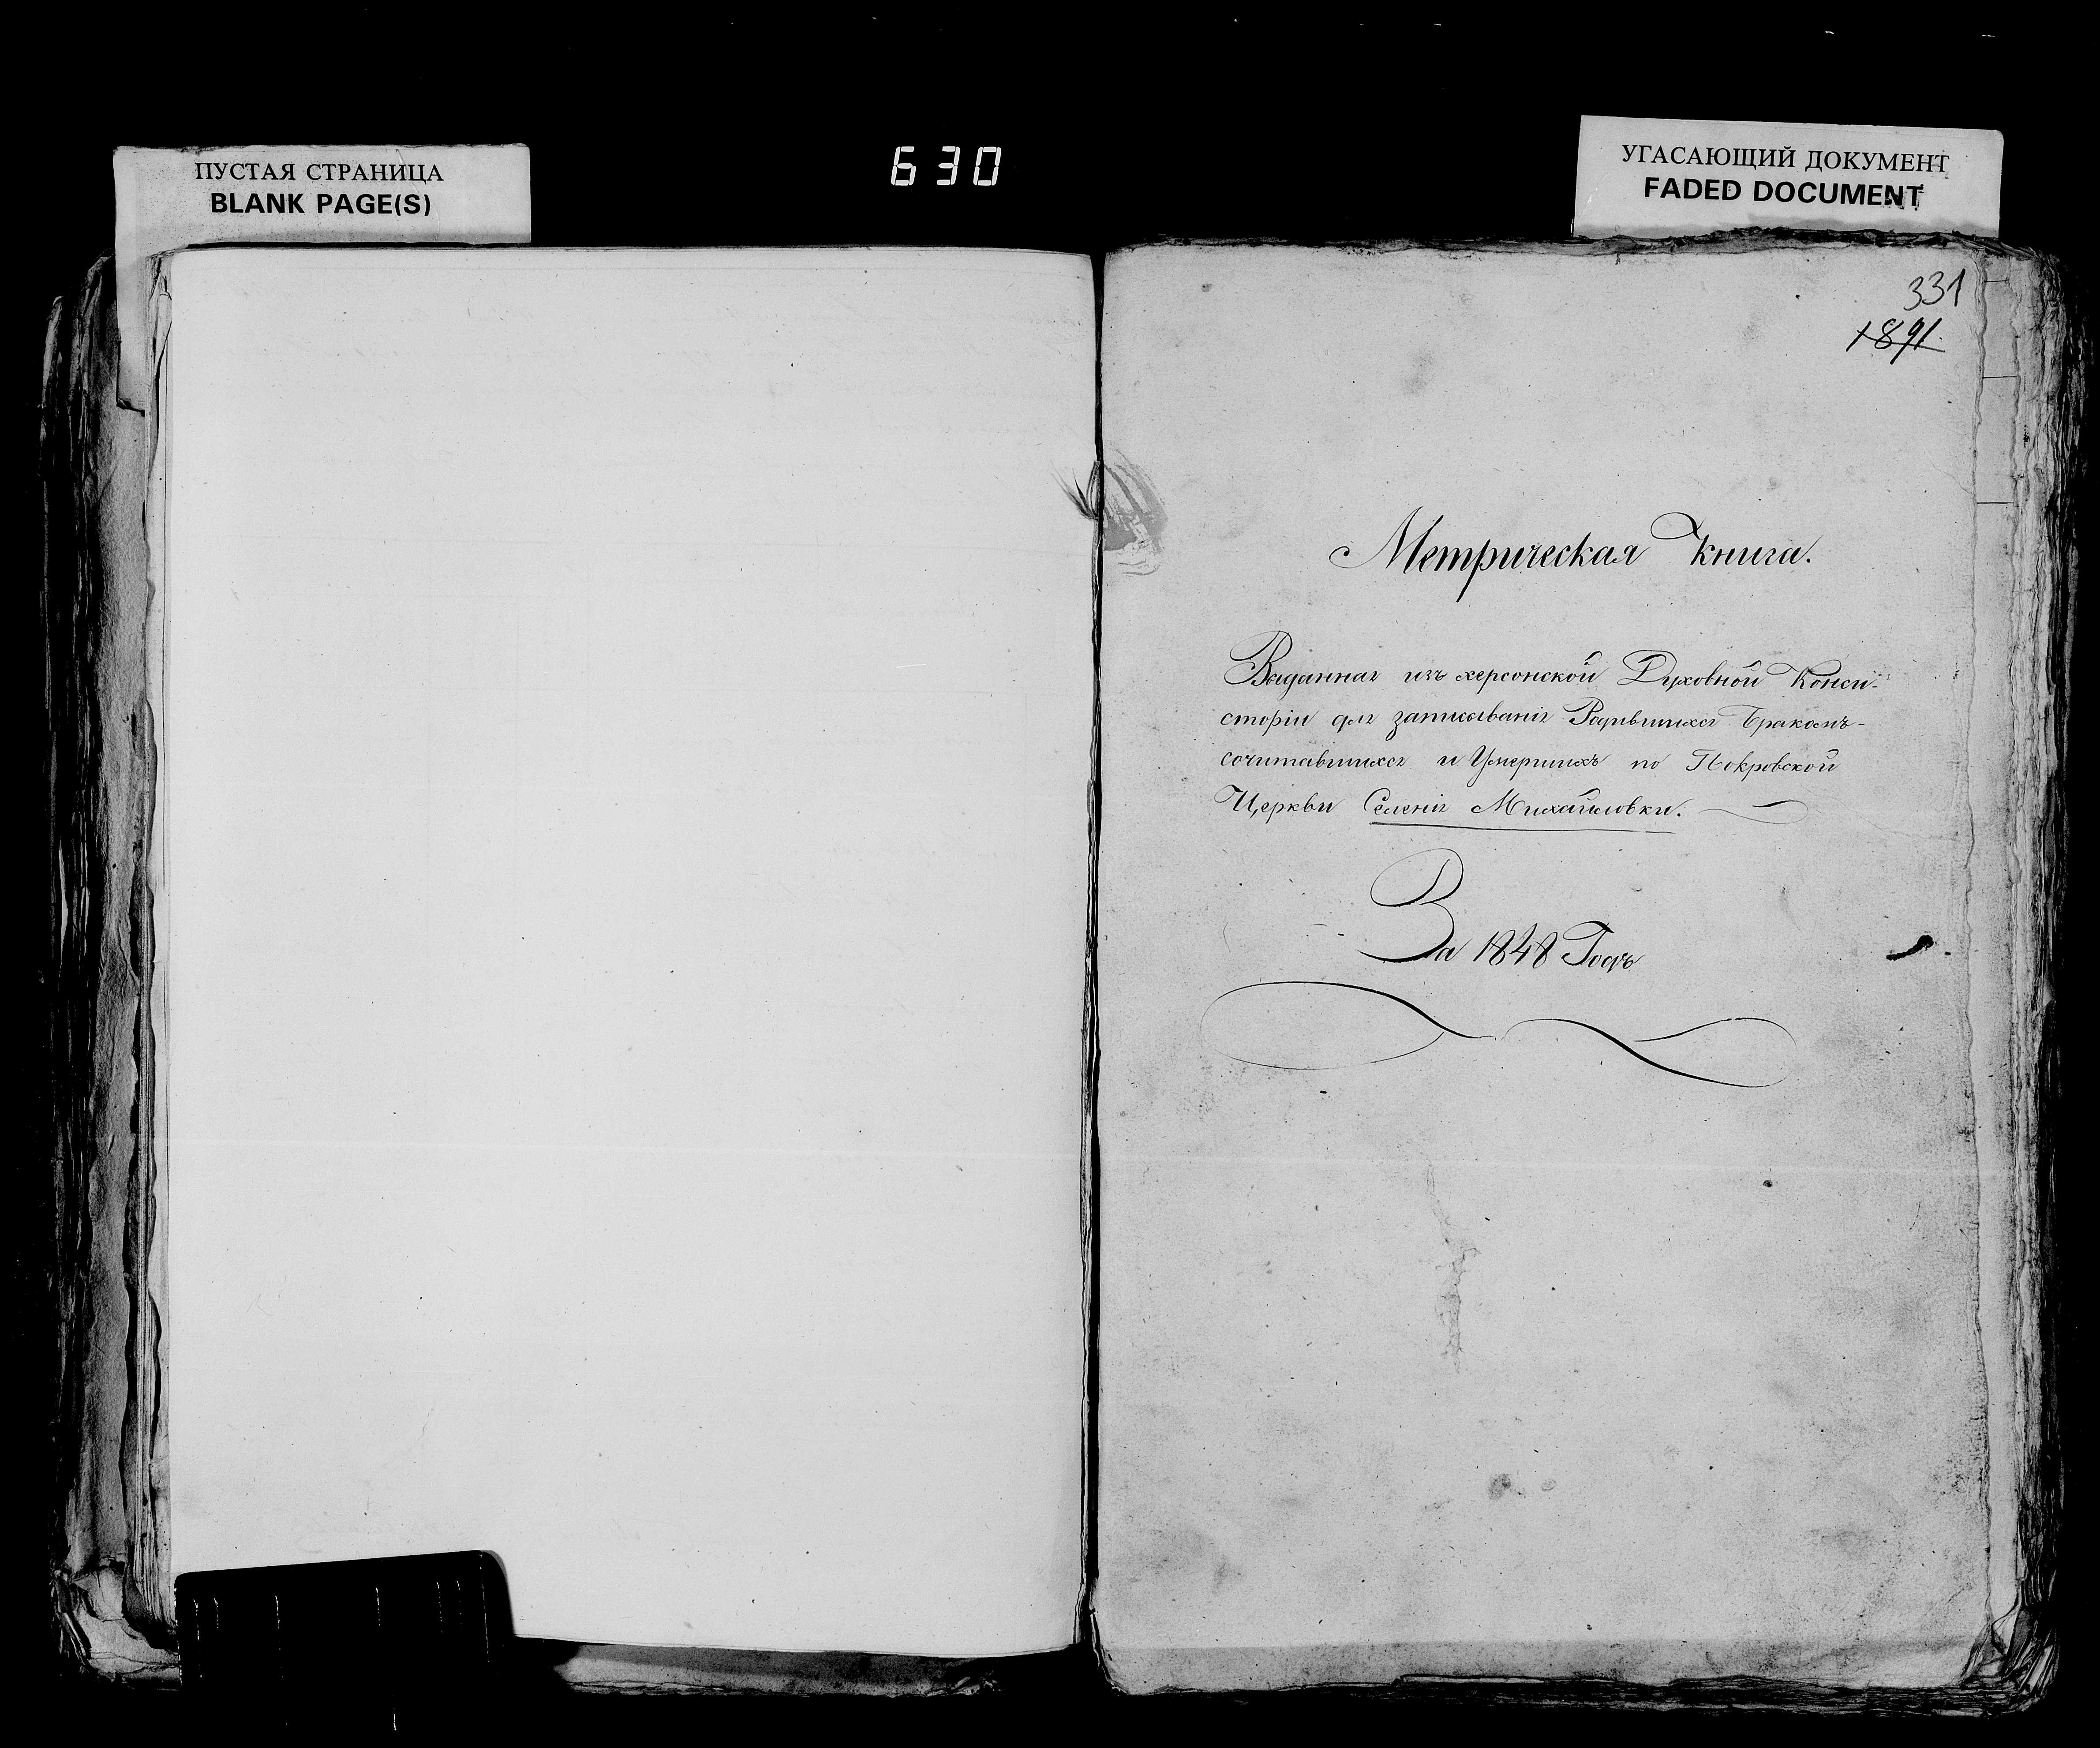 ПУСТАЯ СТРАНИЦА
BLANK PAGE(S)
630
УГАСАЮЩИЙ ДОКУМЕНТ
FADED DOCUMENT
331
1891.
Метрическая книга.
Выданная изъ херсонской Духовной Конси-
сторіи для записыванія Родившихся Бракомъ-
сочитавшихся и Умершихъ по Покровской
Церкви Селенія Михайловки.
За 1848 Годъ